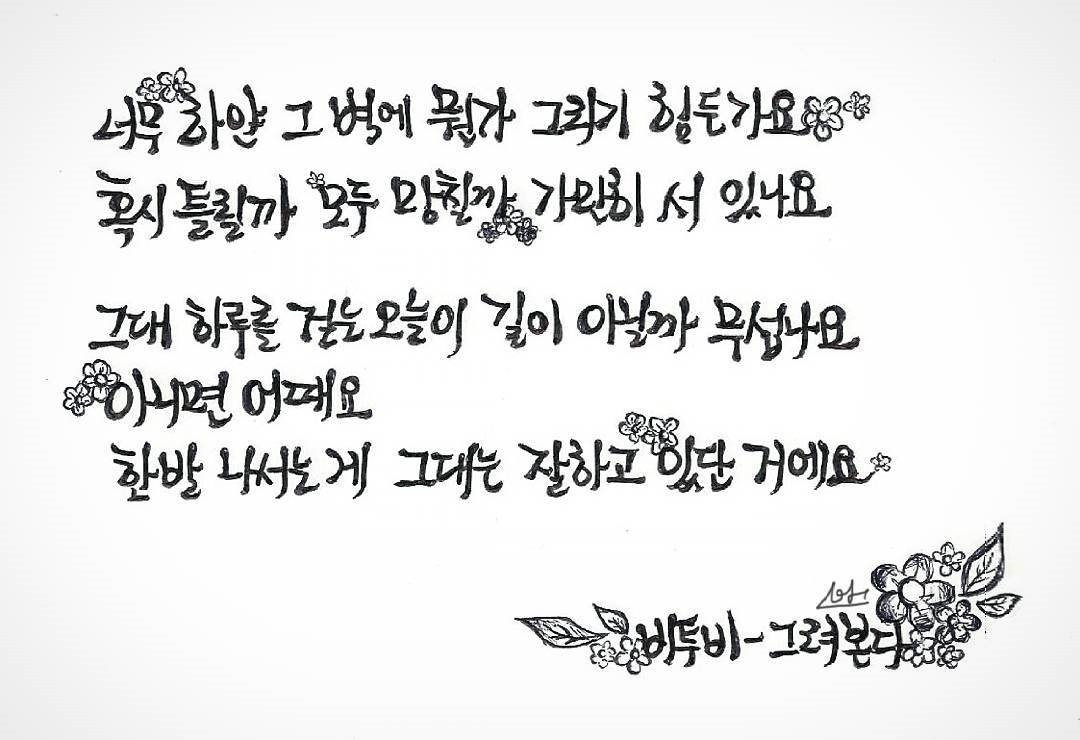 너무 하얀 그 벽에 뭔가 그리기 힘든가요
혹시 틀릴까 모두 망칠까 가만히 서 있나요
그대 하루를 걷는 오늘이 길이 아닐까 무섭나요
아니면 어때요
한발 나서는 게 그대는 잘하고 있단 거에요
비투비-그려본다